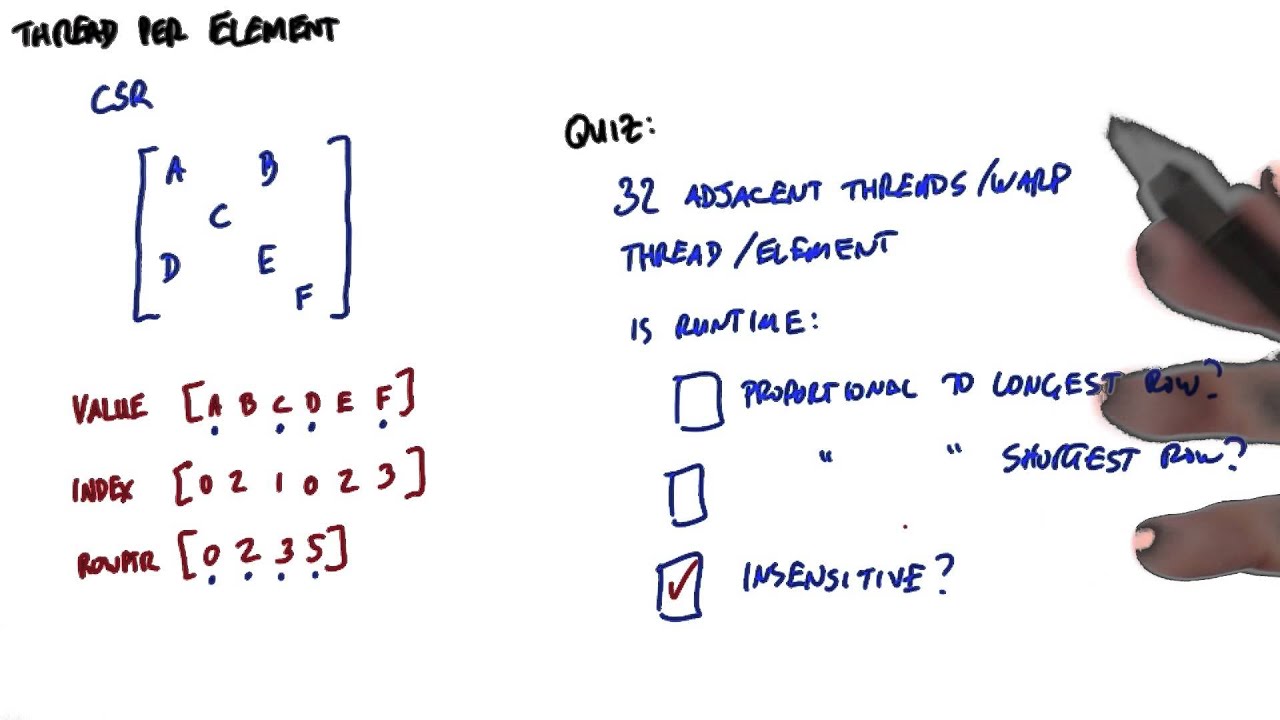 THREAD PER ELEMENT
CSR
A B
C
D E
F
VALUE [A B C D E F]
INDEX [0 2 1 0 2 3]
ROWPTR [0 2 3 5]
QUIZ:
32 ADJACENT THREADS/WARP
THREAD/ELEMENT
IS RUNTIME:
PROPORTIONAL TO LONGEST ROW?
" " SHORTEST ROW?
✓ INSENSITIVE?